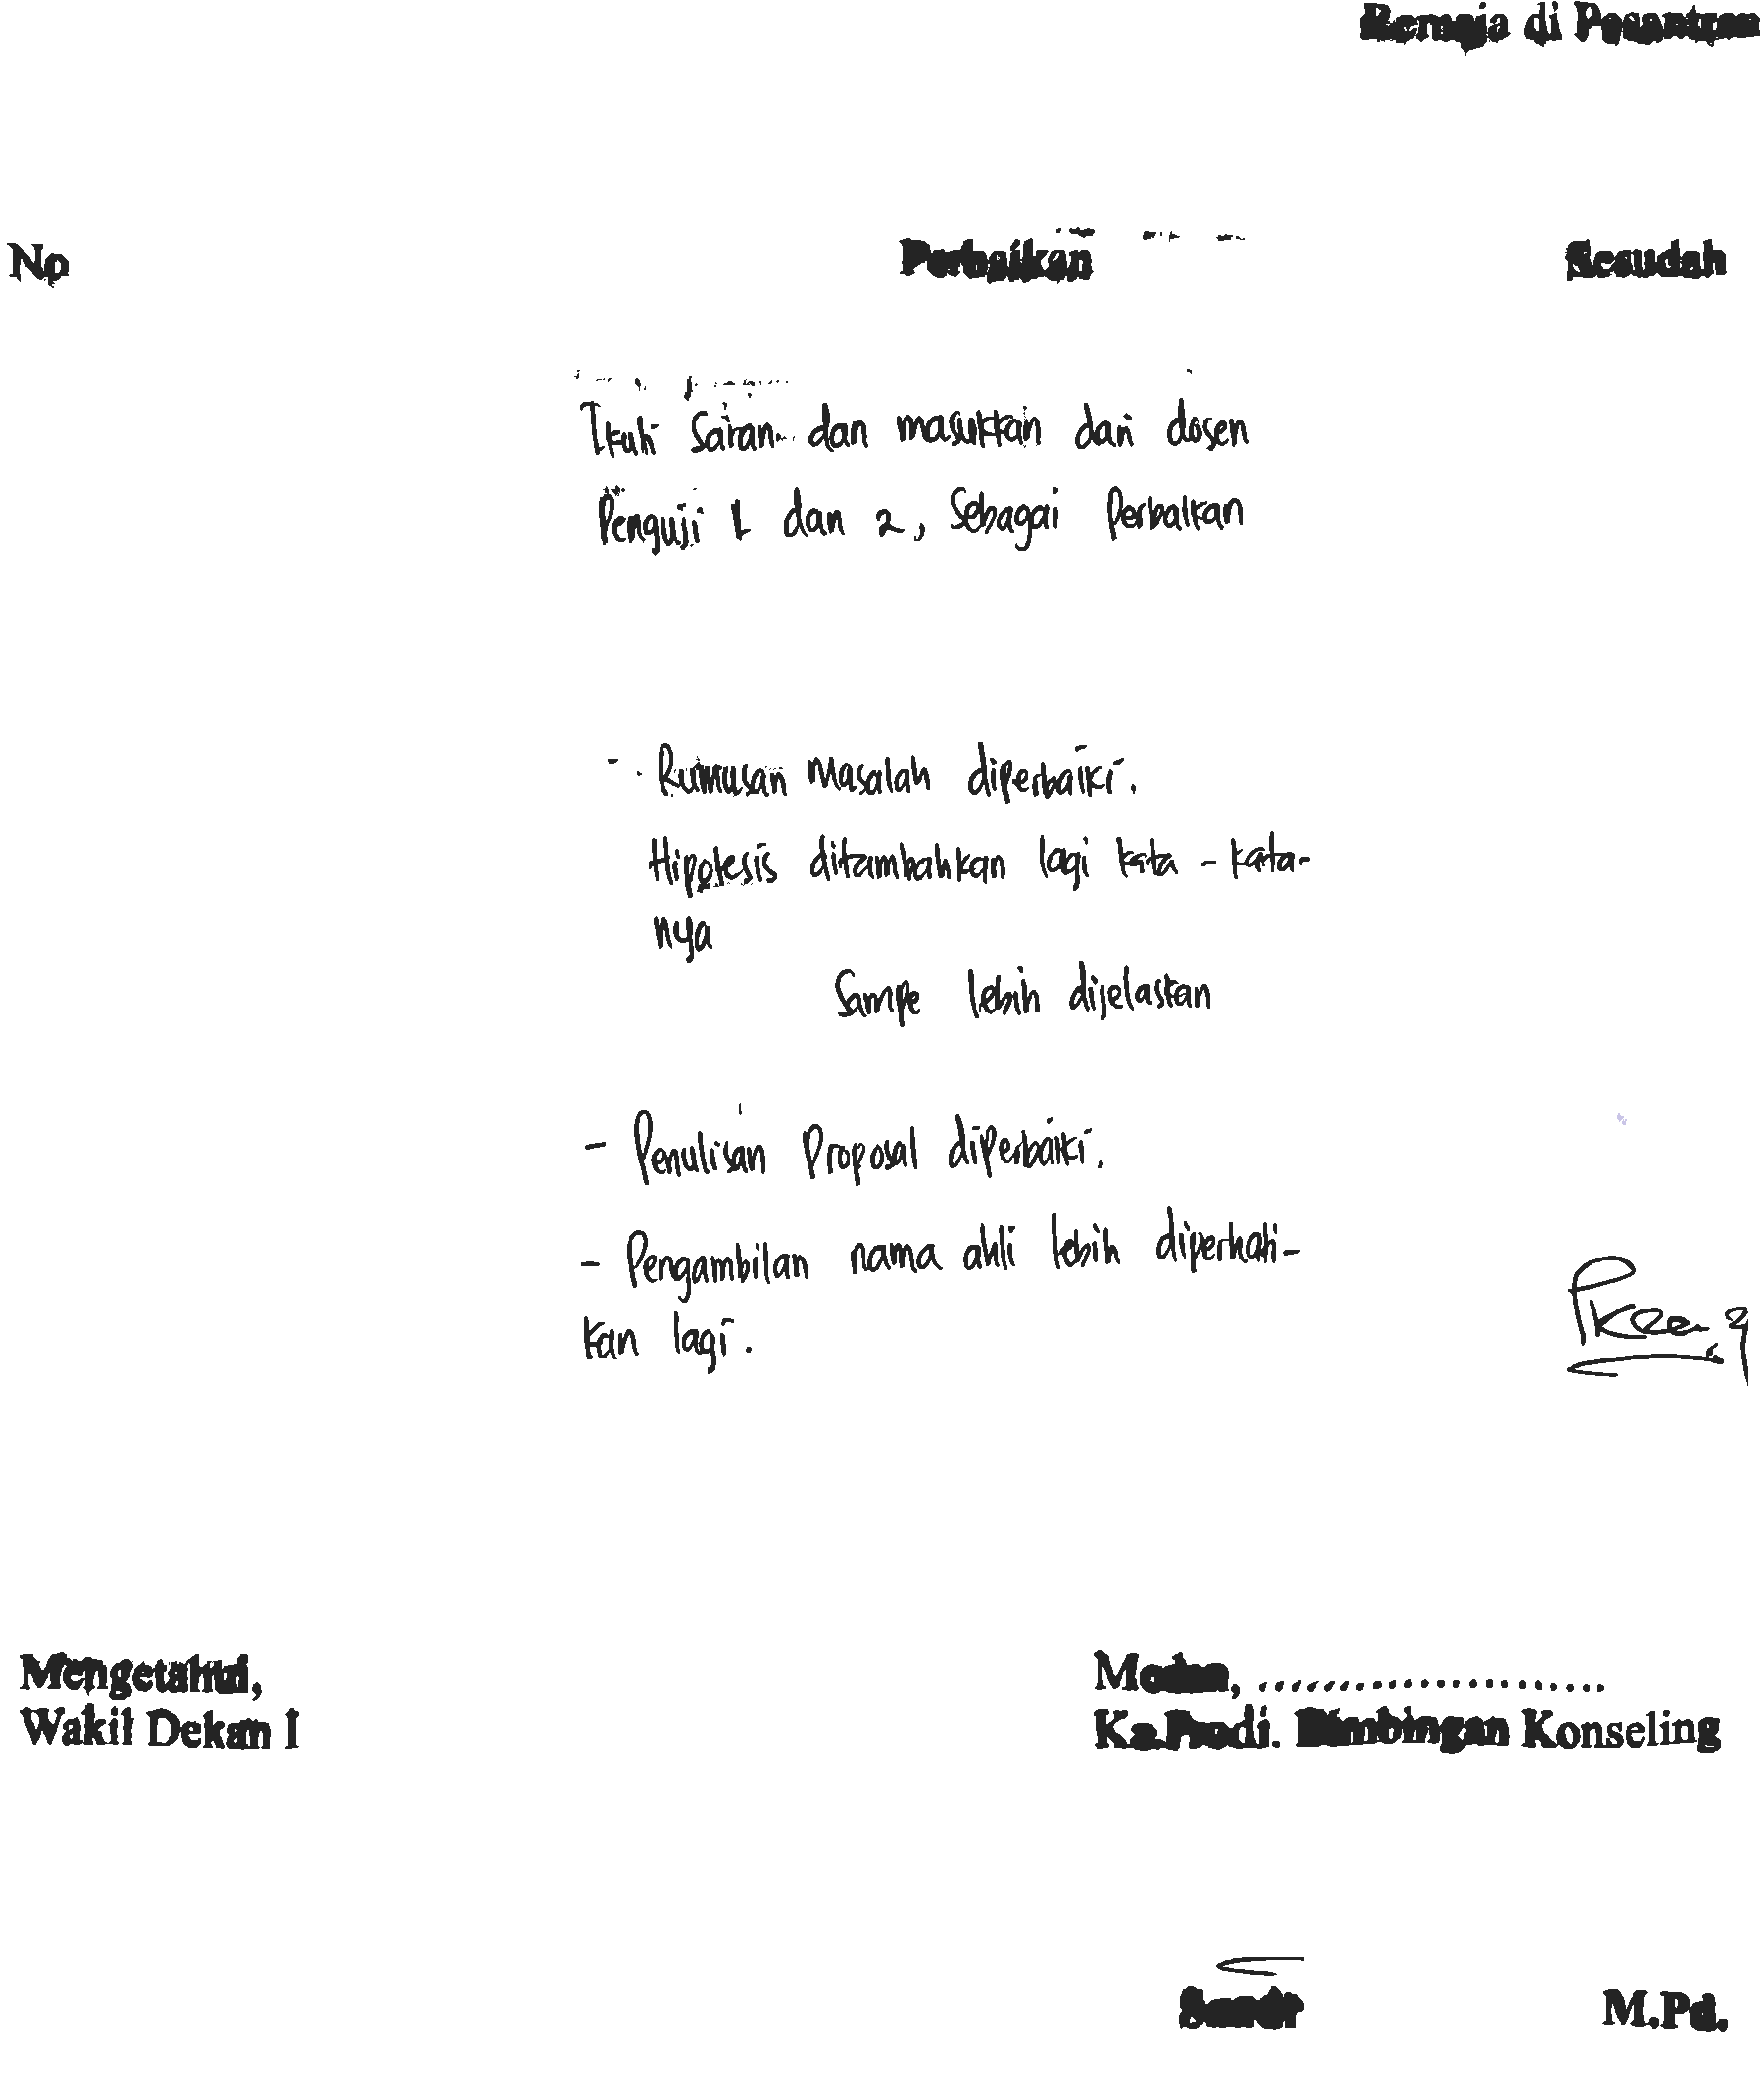 Remaja di Pesantren
No Perbaikan Sesudah
Ikuti Saran dan masukkan dari dosen
Penguji 1 dan 2, Sebagai Perbaikan
- Rumusan Masalah diperbaiki.
Hipotesis ditambahkan lagi kata - kata-
nya
Sampe lebih dijelaskan
- Penulisan Proposal diperbaiki.
- Pengambilan nama ahli lebih diperhati-
kan lagi.
Mengetahui, Medan, ......................
Wakil Dekan I Ka.Prodi. Bimbingan Konseling
M.Pd.